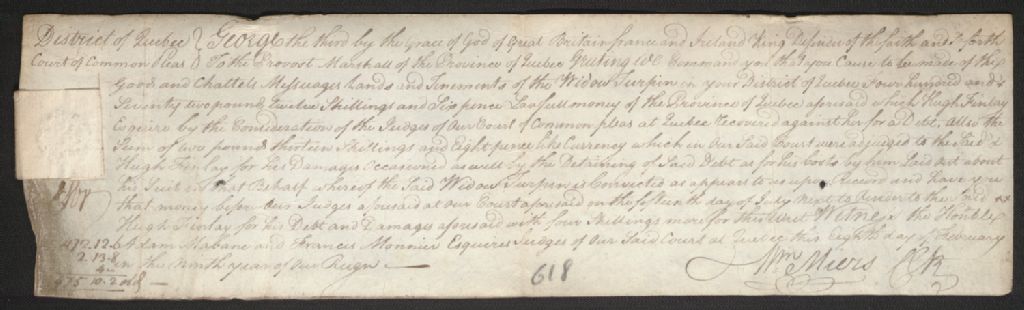 District of Quebec } George the third by the Grace of God of Great Britain france and Ireland King Defender of the faith and so forth
Court of Common Pleas } To the Provost Marshall of the Province of Quebec Greeting We Command you that you Cause to be made of the
Good and Chattels Messuages Lands and Tenements of the Widow Turpin in your District of Quebec Four hundred and
Seventy two pounds Twelve Shillings and Six pence Lawfull money of the Province of Quebec aforesaid which Hugh Finlay
Esquire by the Consideration of the Judges of Our Court of Common pleas at Quebec recovered against her for a Debt, also the
Sum of two pounds thirteen Shillings and Eight pence like Currency which in Our Said Court were adjudged to the Said
Hugh Finlay for his Damages Occasioned as well by the Detaining of Said Debt as for his Costs by him Laid out about
his Suit in that Behalf whereof the Said Widow Turpin is Convicted as appears to us upon Record and have you
that money before Our Judges aforesaid at our Court aforesaid on the fifteenth day of July Next to render to the Said
Hugh Finlay for his Debt and Damages aforesaid with four Shillings more for this Writ Witness the Honble
Adam Mabane and Francis Mounier Esquires Judges of Our Said Court at Quebec this Eighth day of February
in the Ninth year of Our Reign
472.12.6
2.13.8
475.10.2
618
Wm Miers